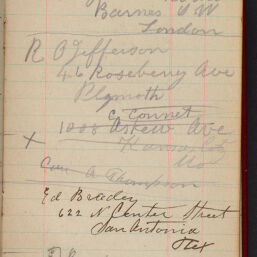 Barnes S W
London
R O Jefferson
46 Roseberry Ave
Plymoth
C Connet
1008 Askew Ave
Kansas City
Mo
A Thompson
Ed Bradey
622 N Center Street
San Antonia
Tex